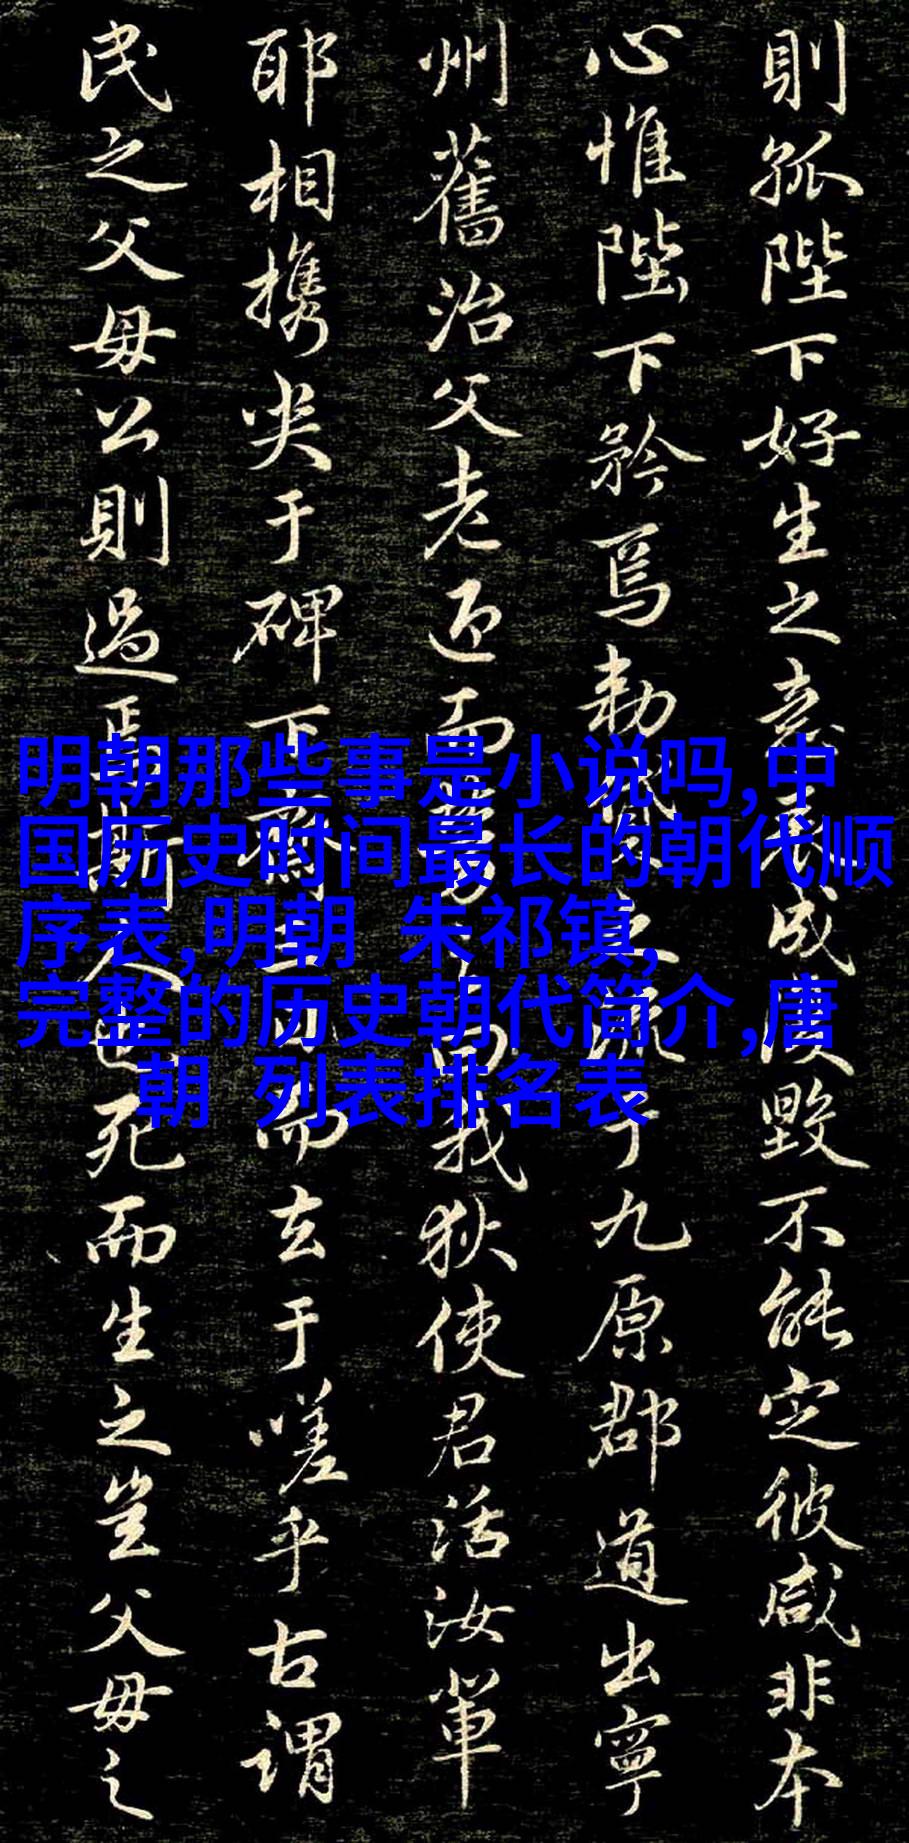 則孤陛下好生之意民成復毀不能定彼咸非本
心惟陛下矜焉勅貸之流于九原郡道出寧
州舊治父老迎而勞之曰我狄使君活汝軰
耶相携哭于碑下齋三日而去于嗟乎古謂
民之父母公則過焉斯人也死而生之豈父母之
明朝那些事是小说吗,中
国历史时间最长的朝代顺
序表,明朝 朱祁镇,
完整的历史朝代简介,唐
朝 列表排名表